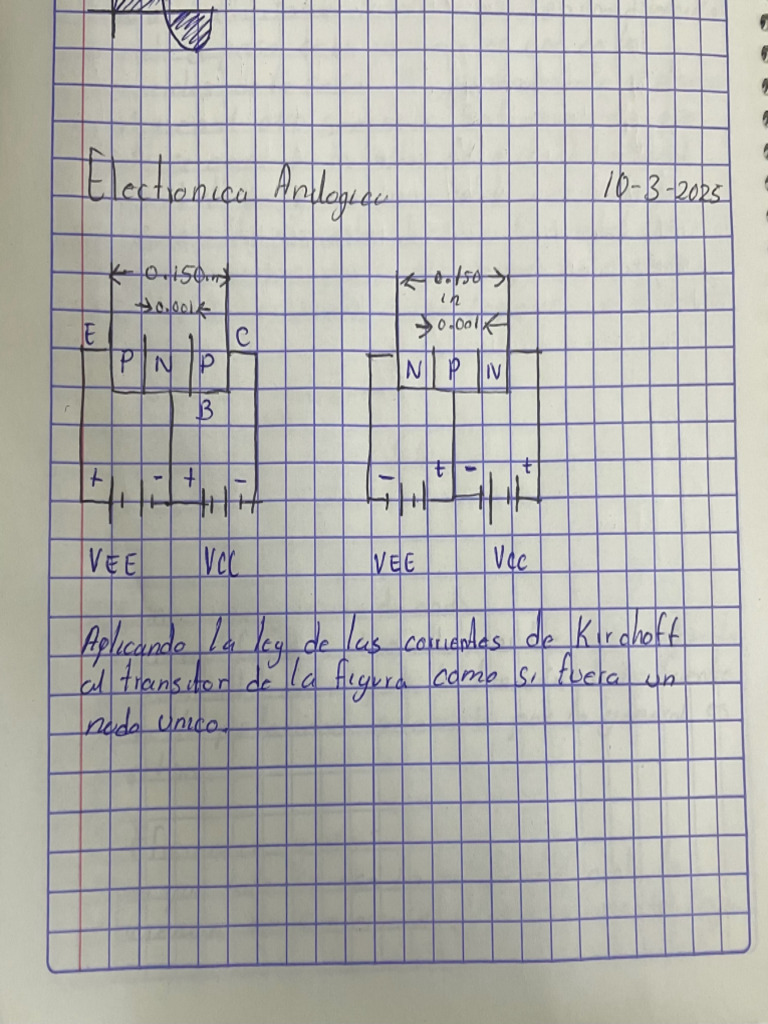 Electronica Analogica 10-3-2025
0.150in 0.150
in
0.001 0.001
E C
P N P N P N
B
+ - + - - + - +
VEE VCC VEE VCC
Aplicando la ley de las corrientes de Kirchoff
al transitor de la figura como si fuera un
nodo unico.